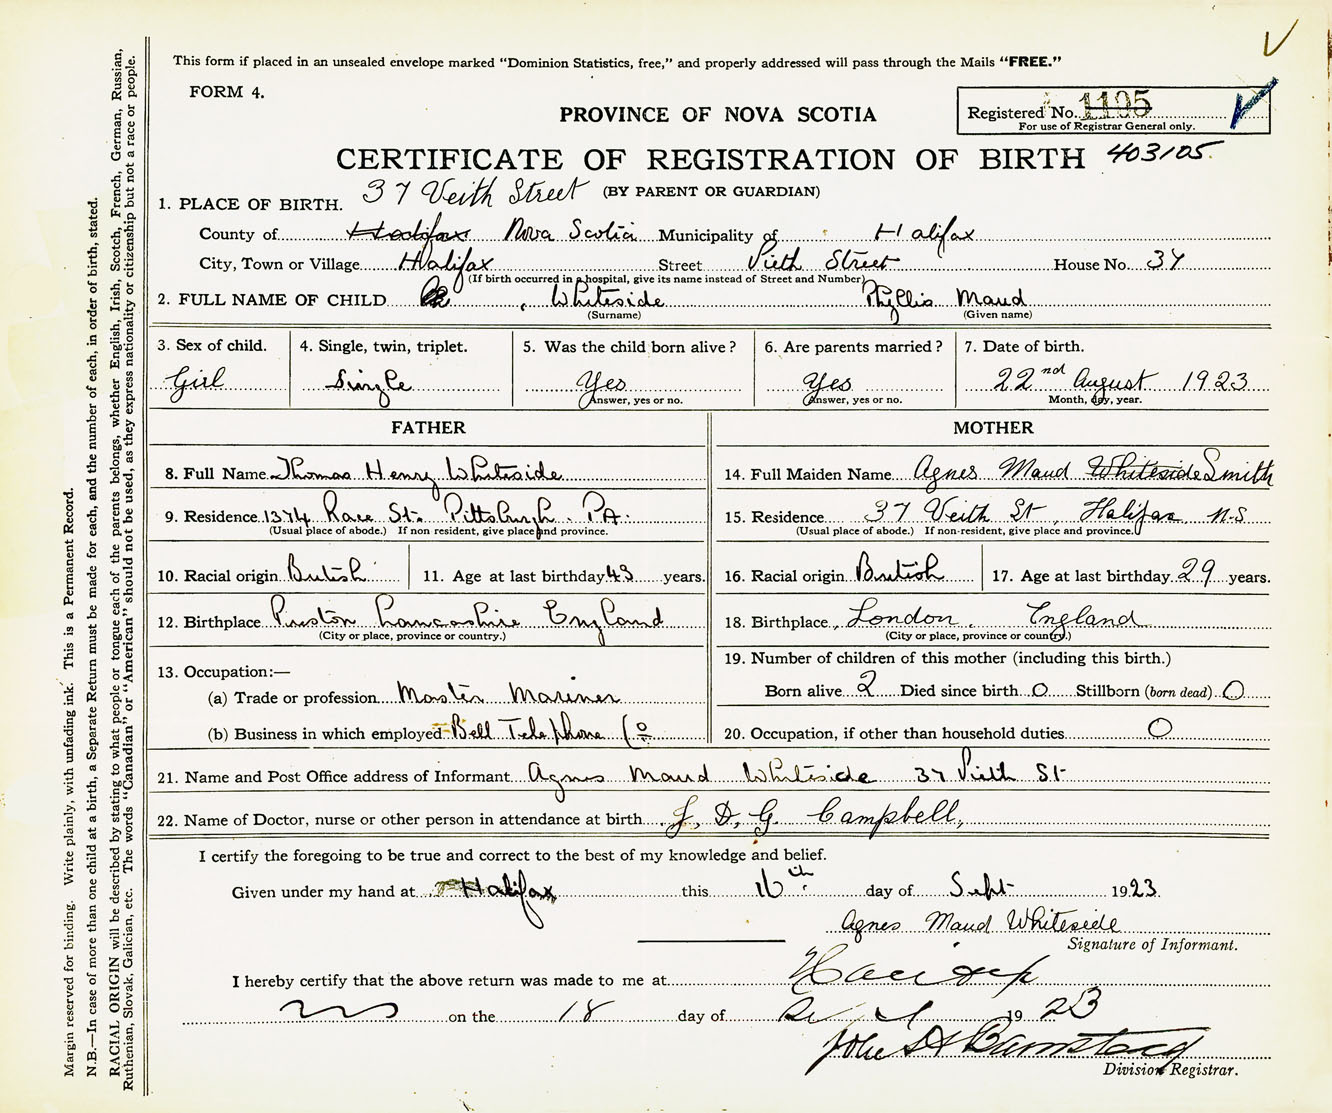 This form if placed in an unsealed envelope marked "Dominion Statistics, free," and properly addressed will pass through the Mails "FREE."
FORM 4.
Registered No. 1195
For use of Registrar General only.
PROVINCE OF NOVA SCOTIA
CERTIFICATE OF REGISTRATION OF BIRTH 403105
(BY PARENT OR GUARDIAN)
1. PLACE OF BIRTH. 37 Veith Street
County of Halifax Nova Scotia Municipality of Halifax
City, Town or Village Halifax Street Vieth Street House No. 37
(If birth occurred in a hospital, give its name instead of Street and Number)
2. FULL NAME OF CHILD Whiteside Phyllis Maud
(Surname) (Given name)
3. Sex of child. 4. Single, twin, triplet. 5. Was the child born alive? 6. Are parents married? 7. Date of birth.
Girl Single Yes Yes 22nd August 1923
Answer, yes or no. Answer, yes or no. Month, day, year.
FATHER MOTHER
8. Full Name Thomas Henry Whiteside 14. Full Maiden Name Agnes Maud Whiteside Smith
9. Residence 1374 Race St. Pittsburgh. PA. 15. Residence 37 Veith St, Halifax N.S
(Usual place of abode.) If non resident, give place and province. (Usual place of abode.) If non-resident, give place and province.
10. Racial origin British 11. Age at last birthday 43 years. 16. Racial origin British 17. Age at last birthday 29 years.
12. Birthplace Preston Lancashire England 18. Birthplace London, England
(City or place, province or country.) (City or place, province or country.)
13. Occupation:— 19. Number of children of this mother (including this birth.)
(a) Trade or profession Master Mariner Born alive 2 Died since birth 0 Stillborn (born dead) 0
(b) Business in which employed Bell Telephone Co 20. Occupation, if other than household duties 0
21. Name and Post Office address of Informant Agnes Maud Whiteside 37 Vieth St
22. Name of Doctor, nurse or other person in attendance at birth J, D, G. Campbell,
I certify the foregoing to be true and correct to the best of my knowledge and belief.
Given under my hand at Halifax this 16th day of Sept 1923
Agnes Maud Whiteside
Signature of Informant.
I hereby certify that the above return was made to me at Halifax
on the 18 day of 1923
Division Registrar.
Margin reserved for binding. Write plainly, with unfading ink. This is a Permanent Record.
N.B.—In case of more than one child at a birth, a Separate Return must be made for each, and the number of each, in order of birth, stated.
RACIAL ORIGIN will be described by stating to what people or tongue each of the parents belongs, whether English, Irish, Scotch, French, German, Russian,
Ruthenian, Slovak, Galician, etc. The words "Canadian" or "American" should not be used, as they express nationality or citizenship but not a race or people.